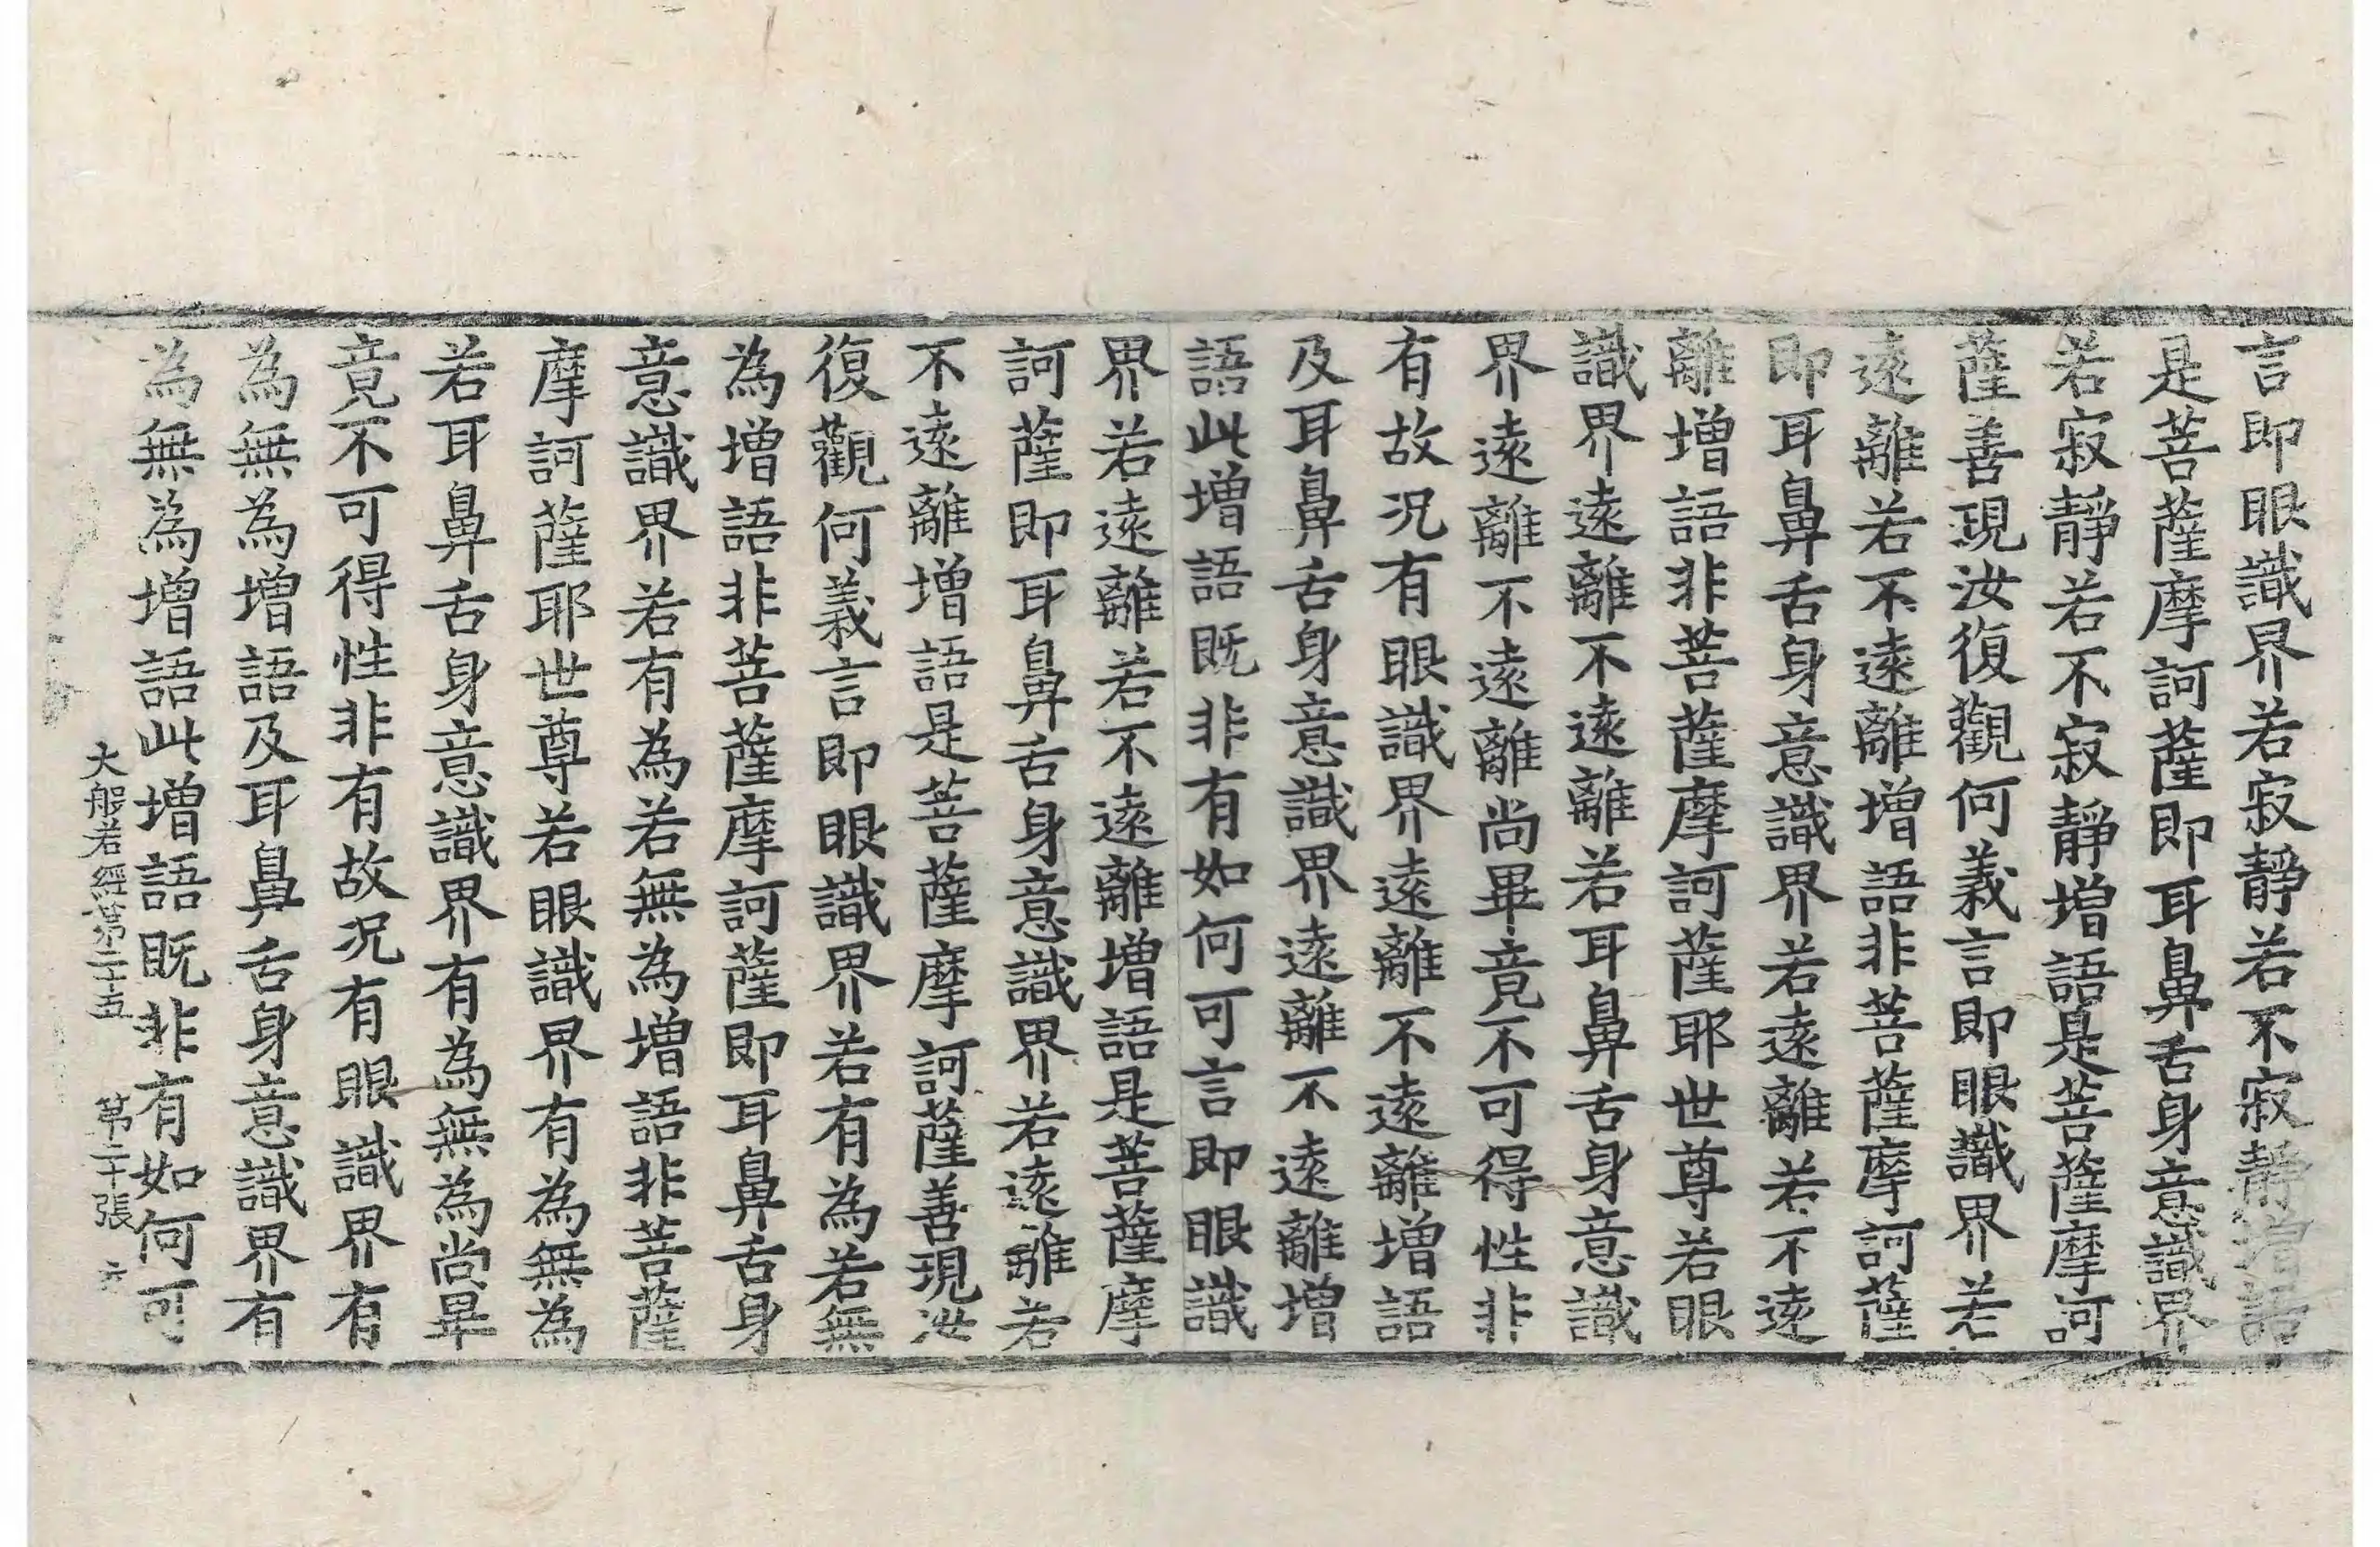 言即眼識界若寂靜若不寂靜增語
是菩薩摩訶薩即耳鼻舌身意識界
若寂靜若不寂靜增語是菩薩摩訶
薩善現汝復觀何義言即眼識界若
遠離若不遠離增語非菩薩摩訶薩
即耳鼻舌身意識界若遠離若不遠
離增語非菩薩摩訶薩耶世尊若眼
識界遠離不遠離若耳鼻舌身意識
界遠離不遠離尚畢竟不可得性非
有故況有眼識界遠離不遠離增語
及耳鼻舌身意識界遠離不遠離增
語此增語既非有如何可言即眼識
界若遠離若不遠離增語是菩薩摩
訶薩即耳鼻舌身意識界若遠離若
不遠離增語是菩薩摩訶薩善現汝
復觀何義言即眼識界若有為若無
為增語非菩薩摩訶薩即耳鼻舌身
意識界若有為若無為增語非菩薩
摩訶薩耶世尊若眼識界有為無為
若耳鼻舌身意識界有為無為尚畢
竟不可得性非有故況有眼識界有
為無為增語及耳鼻舌身意識界有
為無為增語此增語既非有如何可
大般若經第二十五 第二十張 六